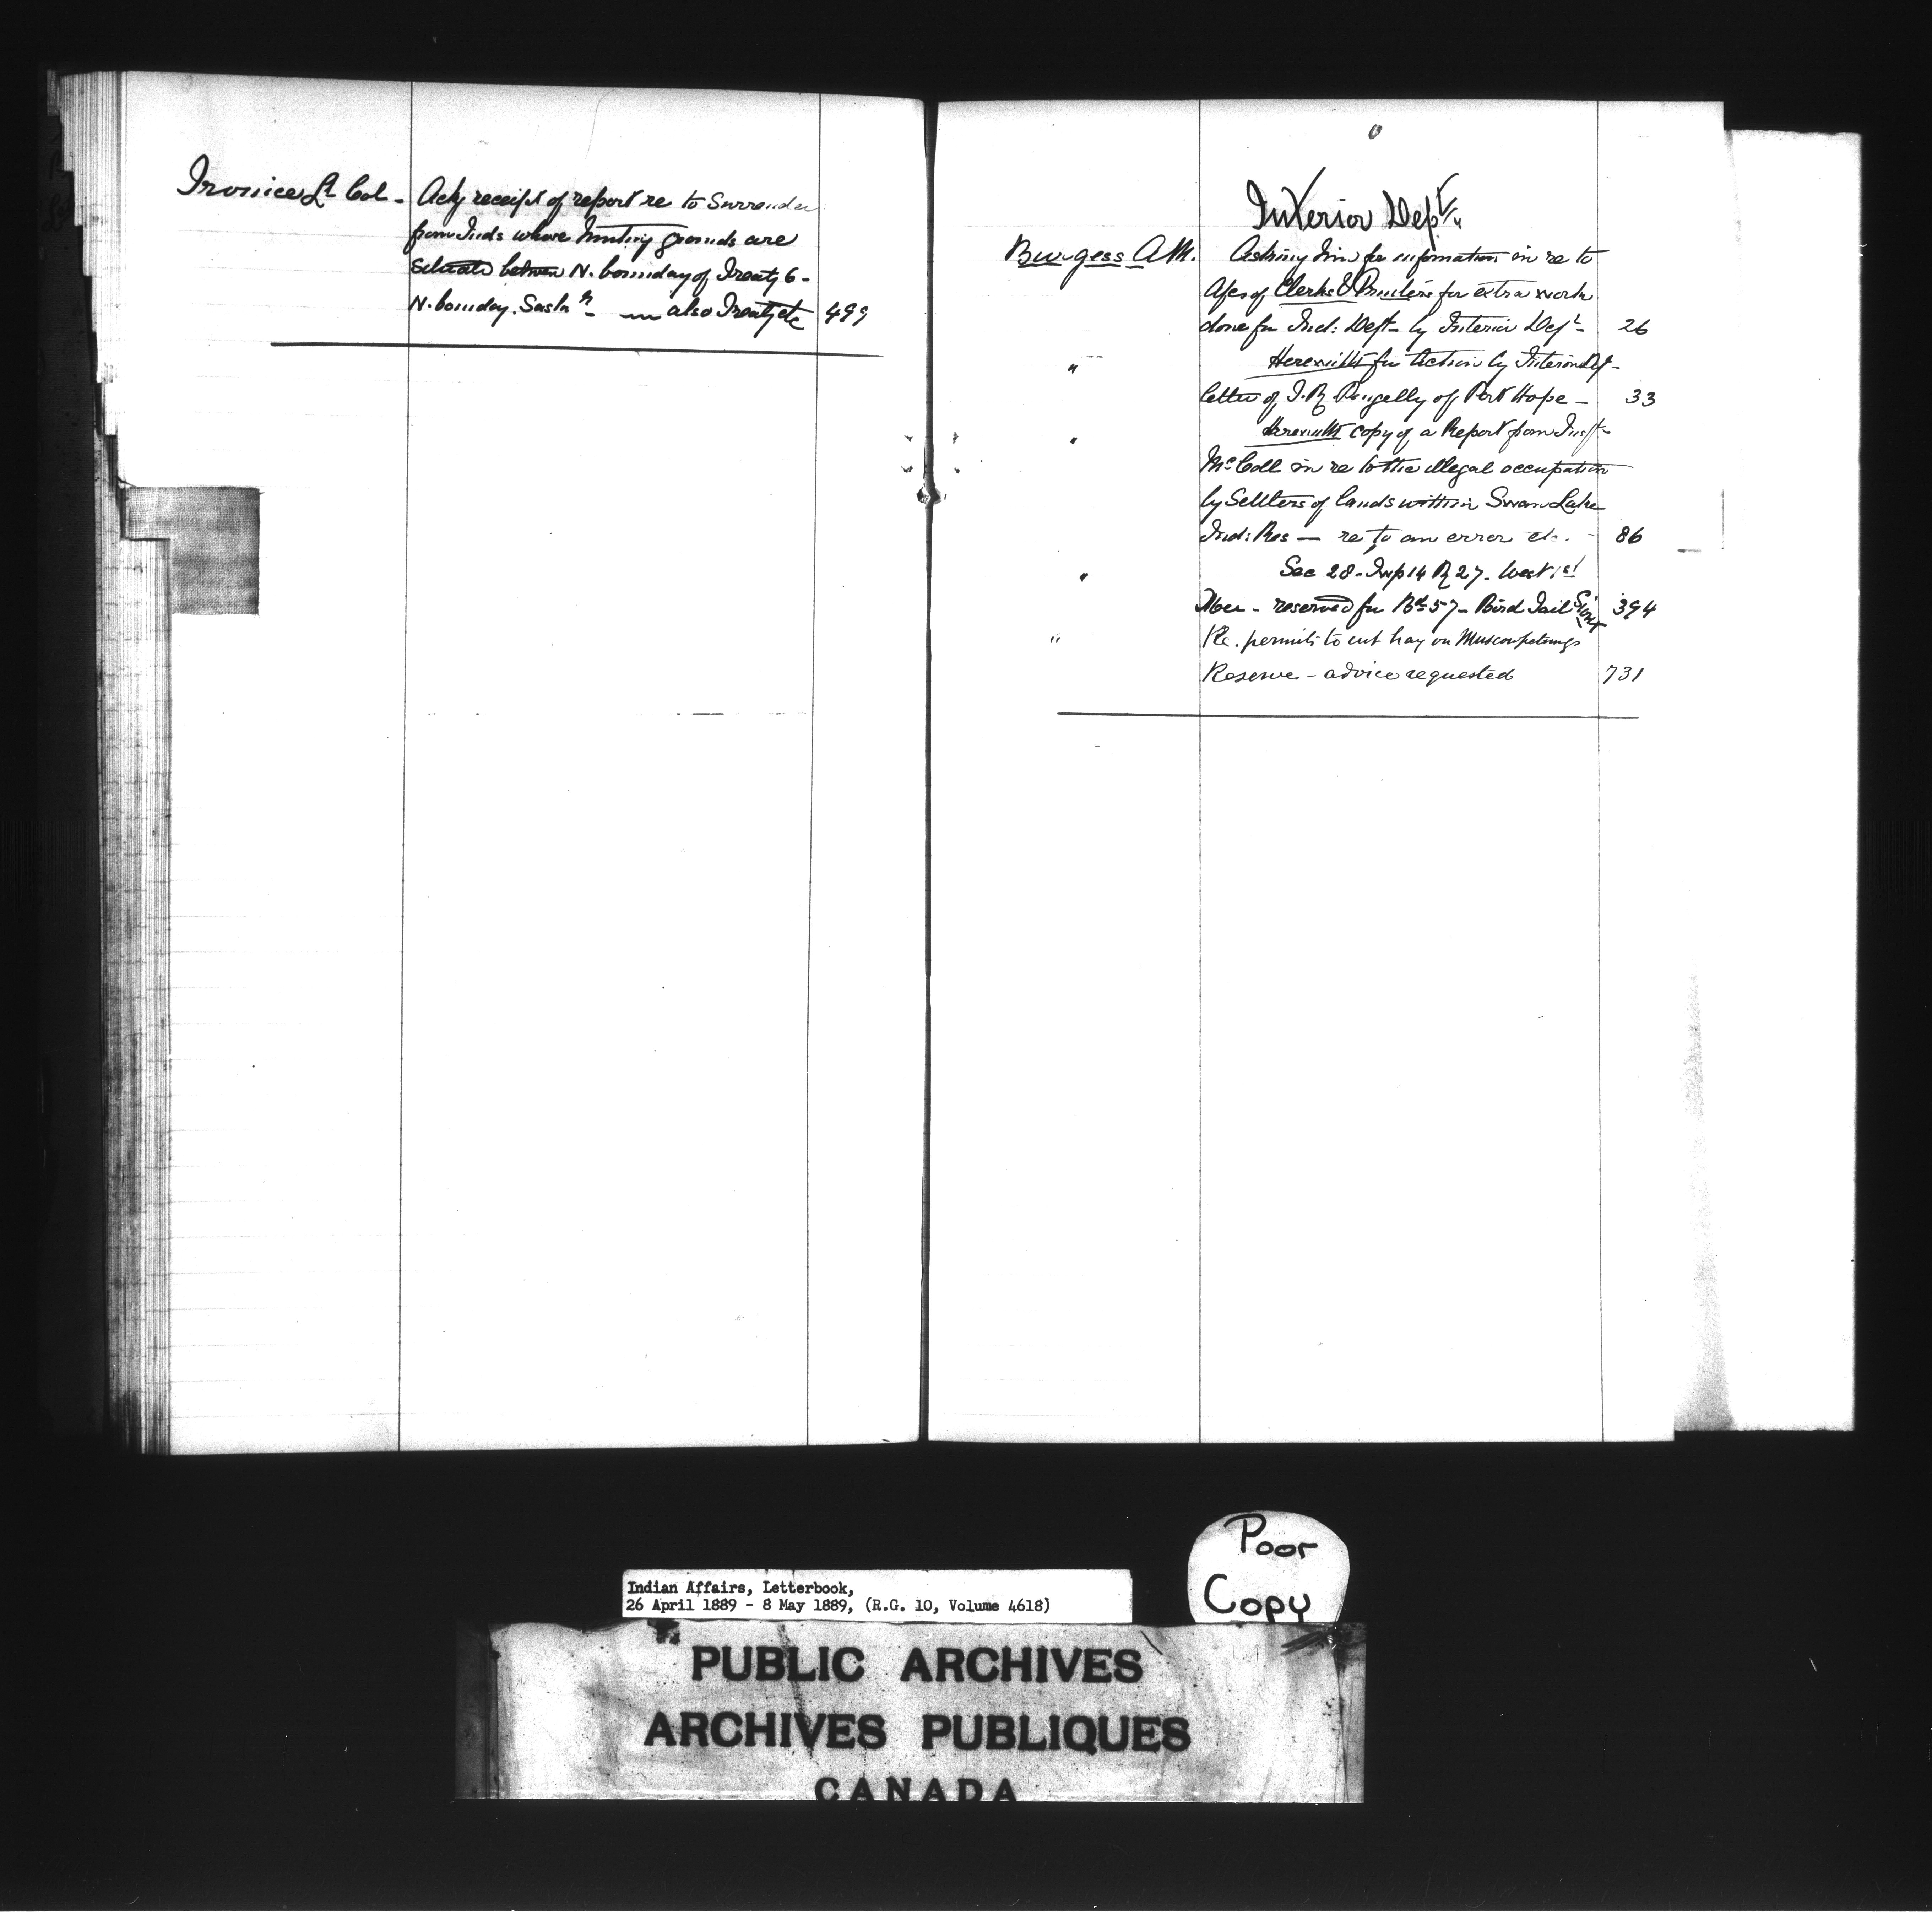 Lt Col - Ack receipt of report re to Surrender
from Inds whose hunting grounds are
situate between N. bounday of Treaty 6 -
N. bounday. Saskn - also Treaty etc 499
Interior Dept
Burgess A.M. Asking him for information in re to
a/cs of Clerks & Printers for extra work
done for Ind: Dept - by Interior Dept - 26
" Herewith for action by Interior Dept -
letter of of Port Hope - 33
" Herewith copy of a Report from Inspt -
McColl in re to the illegal occupation
by Settlers of lands within Swan Lake
Ind: Res — re to an error etc. - 86
" Sec 28 - Twp 14 R 27 - West 1st
Mer - reserved for Bd 57 - Bird Tail Sioux 394
" Re. permits to cut hay on Muscowpetungs
Reserve - advice requested 731
Poor
Copy
Indian Affairs, Letterbook,
26 April 1889 - 8 May 1889, (R.G. 10, Volume 4618)
PUBLIC ARCHIVES
ARCHIVES PUBLIQUES
CANADA